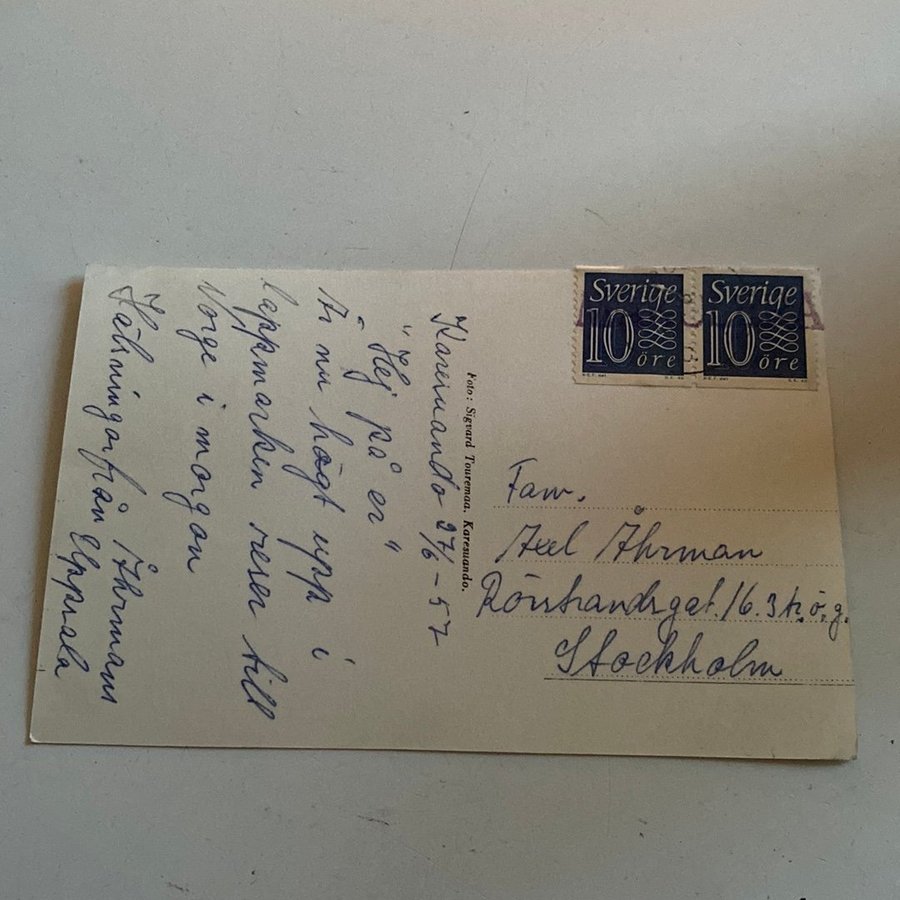 Karesuando 27/6 - 57
"Hej på er"
Är nu högt upp i
lappmarken reser till
Norge i morgon
Hälsningar från Åhrmans
Uppsala
Foto: Sigvard Touremaa. Karesuando.
Sverige
10 öre
Sverige
10 öre
Fam.
Axel Åhrman
Rörstrandsgat. 16. 3 tr. ö. g.
Stockholm